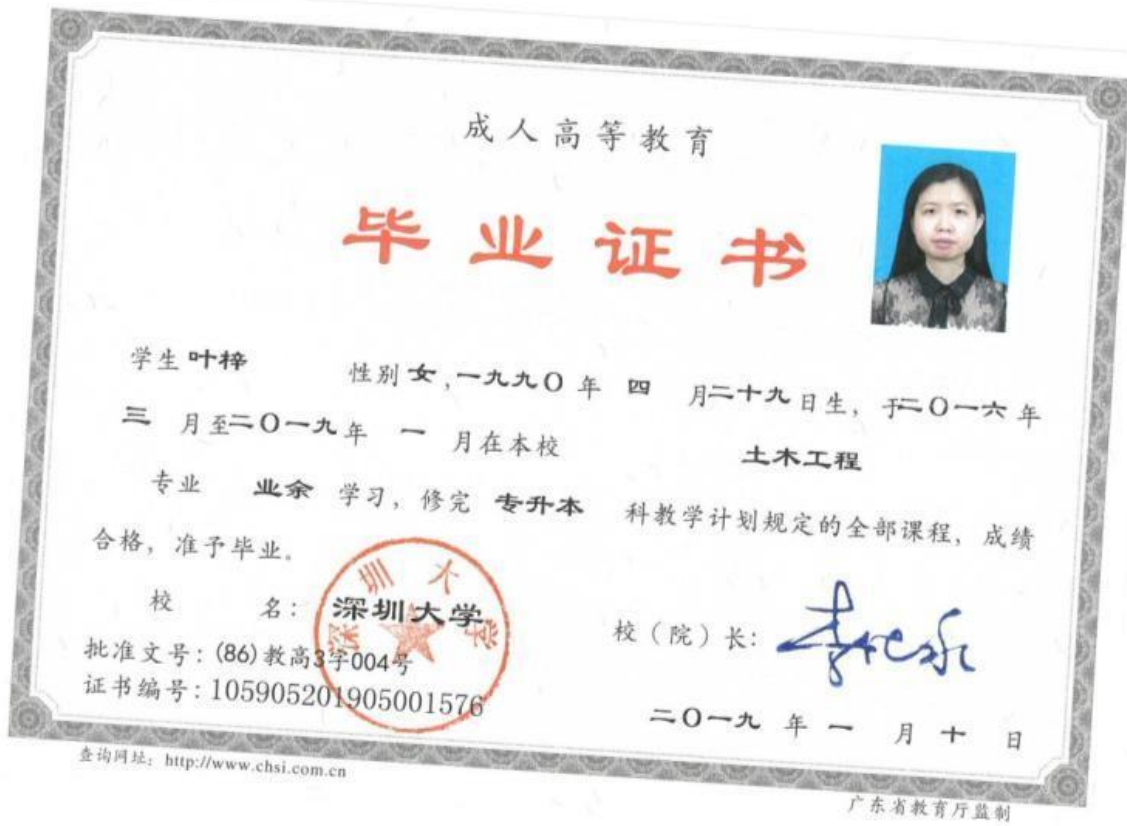 成人高等教育
毕业证书
学生 叶梓 性别 女，一九九〇 年 四 月二十九日生，于二〇一六年
三 月至二〇一九年 一 月在本校 土木工程
专业 业余 学习，修完 专升本 科教学计划规定的全部课程，成绩
合格，准予毕业。
校 名：深圳大学
深圳大学
校（院）长：李清泉
批准文号：(86)教高3字004号
证书编号：105905201905001576
二〇一九 年 一 月 十 日
查询网址：http://www.chsi.com.cn
广东省教育厅监制